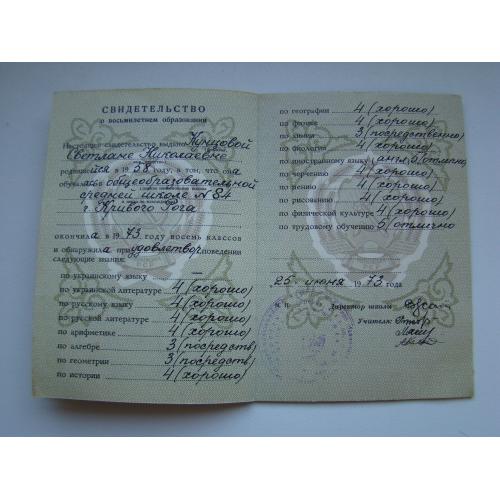 СВИДЕТЕЛЬСТВО
о восьмилетнем образовании
Настоящее свидетельство выдано Кунцовой
Светлане Николаевне
родившейся в 1958 году, в том, что она
обучалась общеобразовательной
средней школе № 84
г. Кривого Рога
окончила в 1973 году восемь классов
и обнаружила при удовлетвор поведении
следующие знания:
по украинскому языку —
по украинской литературе 4 (хорошо)
по русскому языку 4 (хорошо)
по русской литературе 4 (хорошо)
по арифметике 4 (хорошо)
по алгебре 3 (посредств)
по геометрии 3 (посредств)
по истории 4 (хорошо)
по географии 4 (хорошо)
по физике 4 (хорошо)
по химии 3 (посредственно)
по биологии 4 (хорошо)
по иностранному языку (англ) 5 (отлично)
по черчению 4 (хорошо)
по пению 4 (хорошо)
по рисованию 4 (хорошо)
по физической культуре 4 (хорошо)
по трудовому обучению 5 (отлично)
25 июня 1973 года
М. П. Директор школы
Учителя: